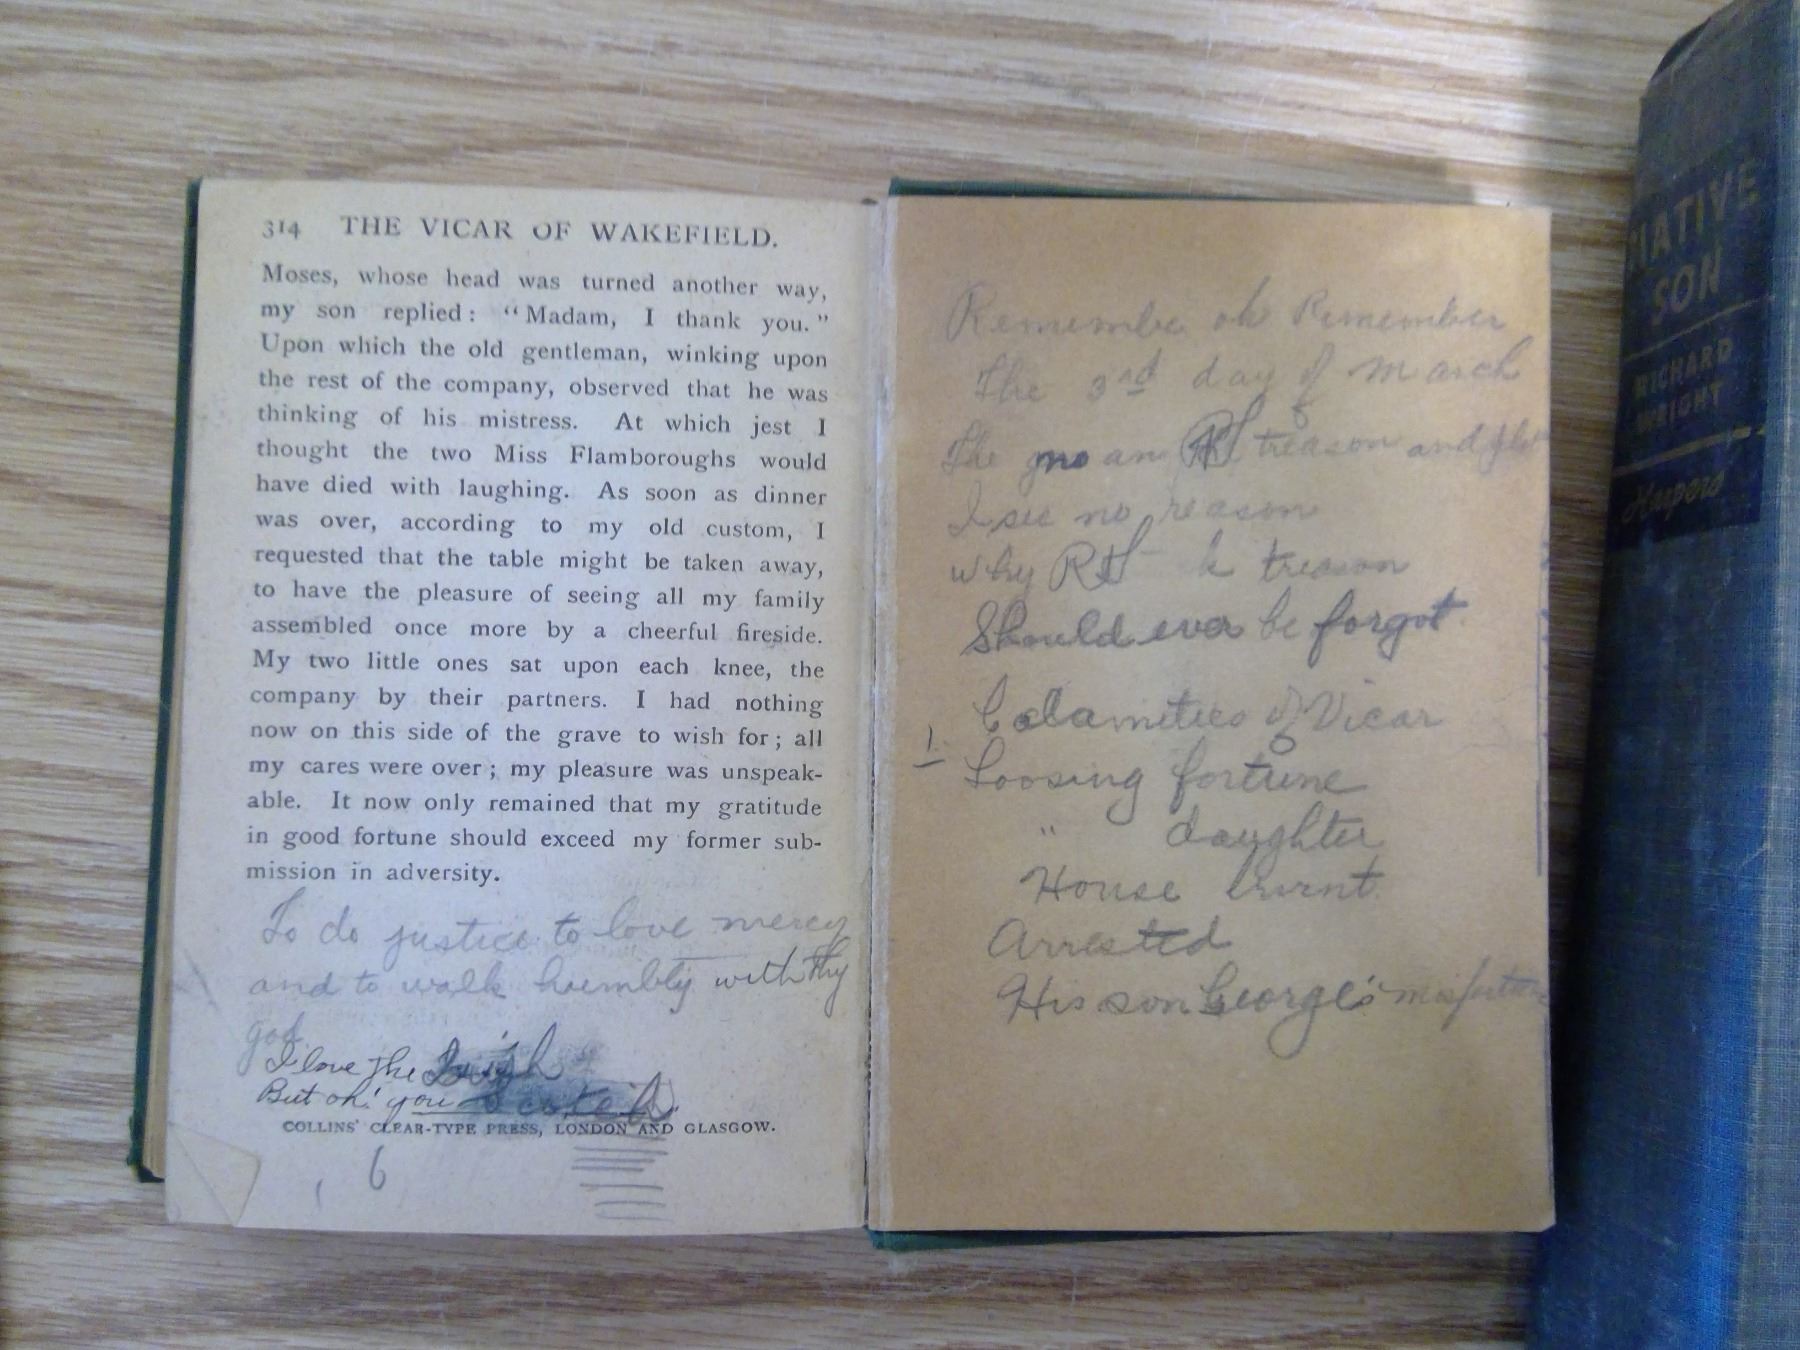 314 THE VICAR OF WAKEFIELD.
Moses, whose head was turned another way,
my son replied: "Madam, I thank you."
Upon which the old gentleman, winking upon
the rest of the company, observed that he was
thinking of his mistress. At which jest I
thought the two Miss Flamboroughs would
have died with laughing. As soon as dinner
was over, according to my old custom, I
requested that the table might be taken away,
to have the pleasure of seeing all my family
assembled once more by a cheerful fireside.
My two little ones sat upon each knee, the
company by their partners. I had nothing
now on this side of the grave to wish for; all
my cares were over; my pleasure was unspeak-
able. It now only remained that my gratitude
in good fortune should exceed my former sub-
mission in adversity.
To do justice to love mercy
and to walk humbly with thy
god
I love the Irish
But oh! you Scotch
COLLINS' CLEAR-TYPE PRESS, LONDON AND GLASGOW.
6
Remembe oh Remember
The 3rd day of March
The treason and
I see no reason
why RH treason
Should ever be forgot
Calamities of Vicar
1. Loosing fortune
" daughter
House burnt
Arrested
His son George's misfortune
NATIVE
SON
RICHARD
WRIGHT
Harpers